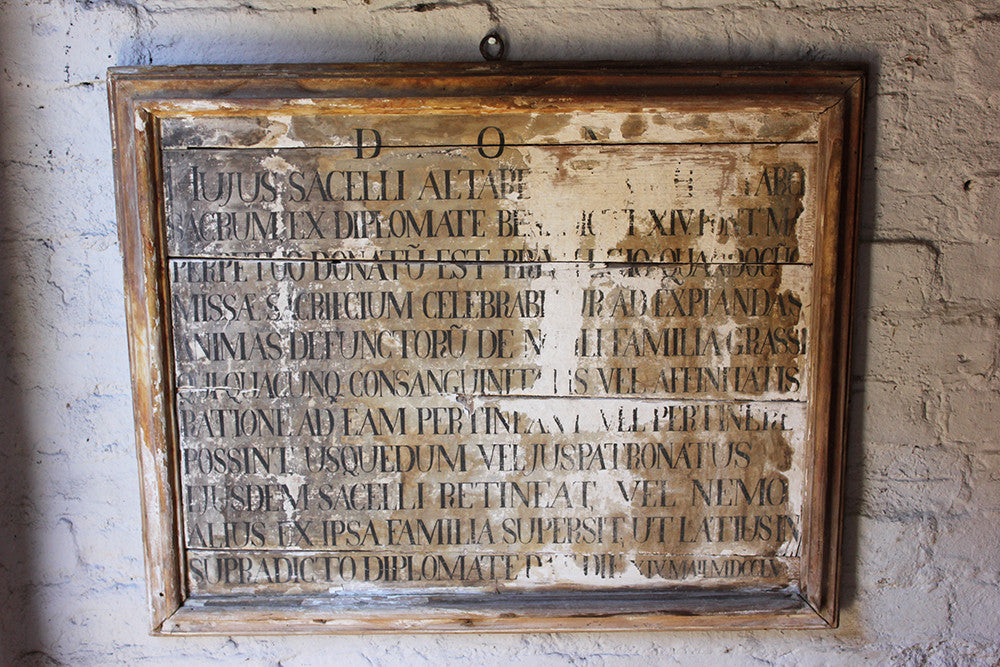 D O
HUJUS SACELLI
SACRUM EX DIPLOMATE XIV PONT
PERPETUO DONATŨ EST
MISSÆ SACRIFICIUM CELEBRABI UR AD EXPIANDAS
ANIMAS DEFUNCTORŨ DE FAMILIA GRASSI
QUI QUACUNQ CONSANGUINIT IS VEL AFFINITATIS
RATIONE AD EAM PERTINEANT VEL PERTINERE
POSSINT USQUEDUM VEL JUSPATRONATUS
EJUSDEM SACELLI RETINEAT, VEL NEMO
ALIUS EX IPSA FAMILIA SUPERSIT, UT LATIUS IN
SUPRADICTO DIPLOMATE DIE